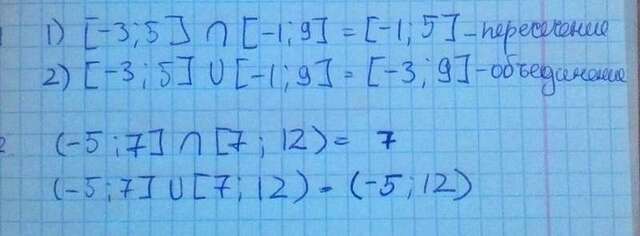 1) [-3;5] ∩ [-1;9] = [-1;5] - пересечение
2) [-3;5] ∪ [-1;9] = [-3;9] - объединение
2. (-5;7] ∩ [7;12) = 7
(-5;7] ∪ [7;12) = (-5;12)